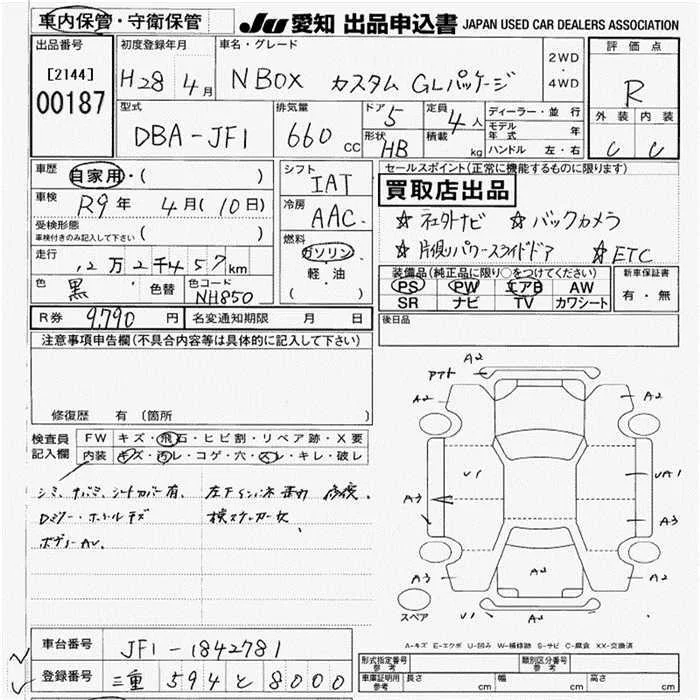 車内保管・守衛保管
JU 愛知 出品申込書 JAPAN USED CAR DEALERS ASSOCIATION
出品番号
[2144]
00187
初度登録年月
H28 4月
車名・グレード
N BOX カスタム GLパッケージ
2WD
・
4WD
評価点
R
外装 内装
C C
型式
DBA-JF1
排気量
660 CC
ドア 5
形状 HB
定員 4人
積載 kg
ディーラー・並行
モデル年式 年
ハンドル 左・右
車歴 自家用・( )
車検 R9年 4月(10日)
受検形態
車検付きのみ記入して下さい ( )
走行 12万2千457km
色 黒 色替 色コード NH850
シフト
IAT
冷房
AAC
燃料
ガソリン
・
軽・油
( )
セールスポイント(正常に機能するものに限ります)
買取店出品
☆社外ナビ ☆バックカメラ
☆片側パワースライドドア ☆ETC
装備品(純正品に限り○をつけてください)
PS PW エアB AW
SR ナビ TV カワシート
新車保証書
有・無
R券 9,790円 名変通知期限 月 日
後日品
注意事項申告欄(不具合内容等は具体的に記入して下さい)
修復歴 有(箇所
検査員記入欄
FW キズ・飛石・ヒビ割・リペア跡・X要
内装 キズ・汚レ・コゲ・穴・スレ・キレ・破レ
シミ、
シートカバー有、
A2
A2 A2
U1 UA1
A3 A3
A2
A3 A2
U1 A2
スペア
A-キズ E-エクボ U-凹み W-補修跡 S-サビ C-腐食 XX-交換済
車台番号 JF1-1842781
登録番号 三重 594 と 8000
形式指定番号
参考
類別区分番号
参考
車庫証明用
参考
長さ cm 幅 cm 高さ cm